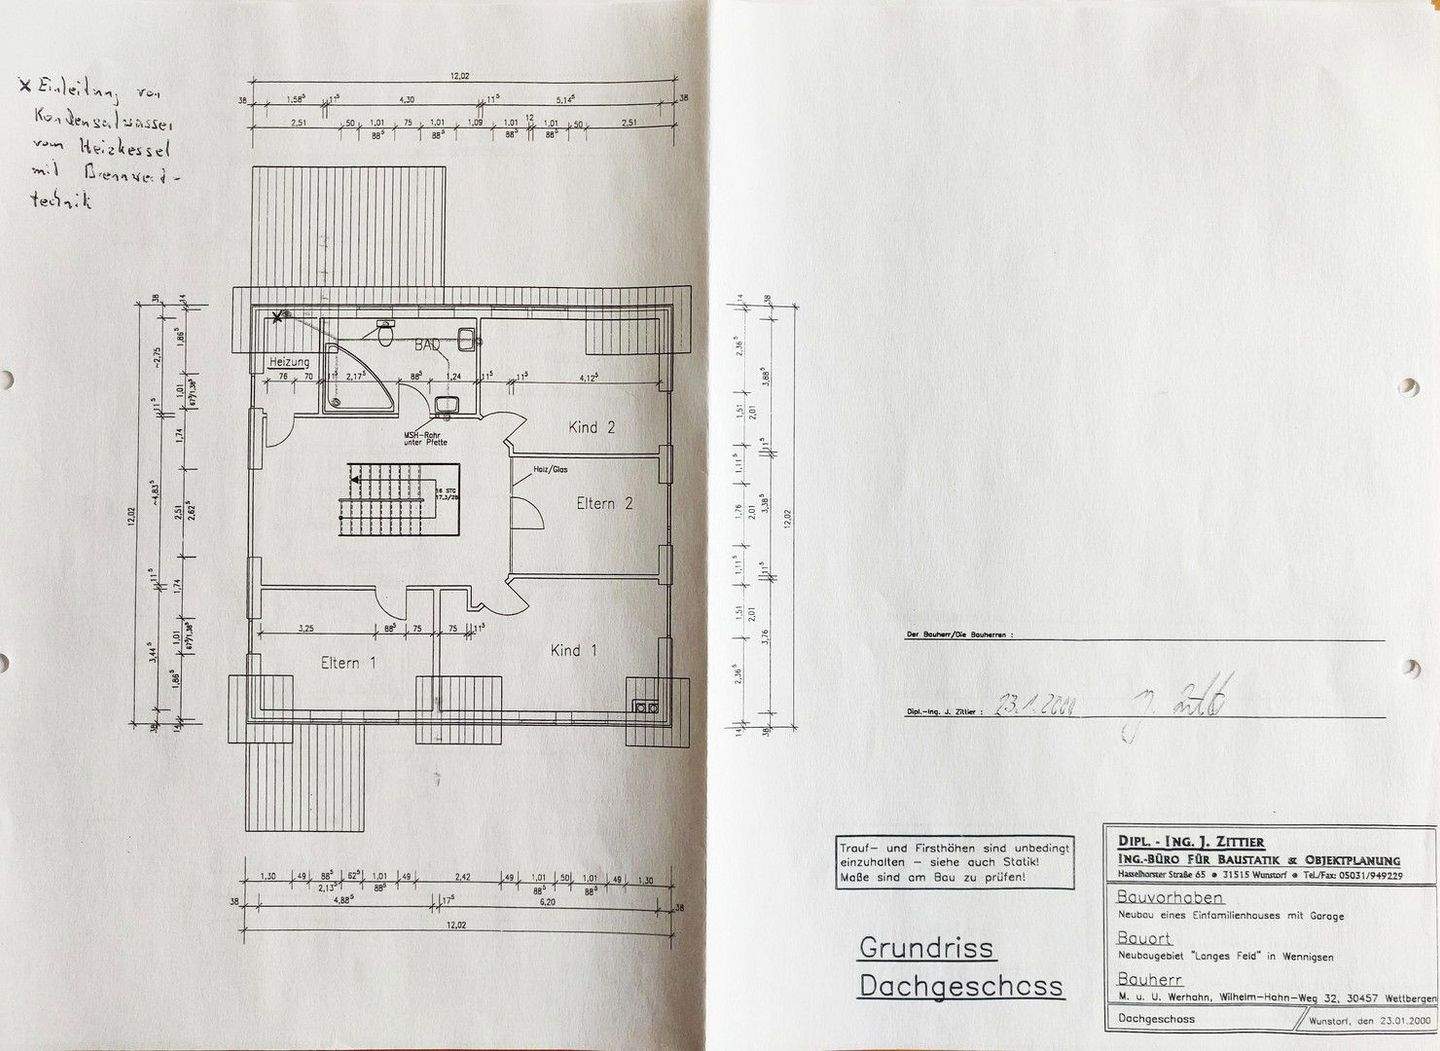 x Einleitung von
Kondensatwasser
vom Heizkessel
mit Brennwert-
technik
12,02
38 1,58⁵ 11⁵ 4,30 11⁵ 5,14⁵ 38
2,51 50 1,01 75 1,01 1,09 1,01 12 1,01 50 2,51
88⁵ 88⁵ 88⁵ 88⁵
Heizung
BAD
76 70 11⁵ 2,17⁵ 88⁵ 1,24 11⁵ 11⁵ 4,12⁵
MSH-Rohr
unter Pfette
Kind 2
Holz/Glas
16 STG
17,3/28
Eltern 2
3,25 88⁵ 75 75 11⁵
Eltern 1
Kind 1
12,02
38 ~2,75 11⁵ ~4,83⁵ 11⁵ 3,44⁵ 38
14 1,86⁵ 1,01 1,74 2,51 1,74 1,01 1,86⁵ 14
67⁵/1,38⁵ 2,62⁵ 67⁵/1,38⁵
14 2,36⁵ 1,51 1,11⁵ 1,76 1,11⁵ 1,51 2,36⁵ 14
2,01 2,01 2,01
38 3,88⁵ 11⁵ 3,38⁵ 11⁵ 3,76 38
12,02
1,30 49 88⁵ 62⁵ 1,01 49 2,42 49 1,01 50 1,01 49 1,30
2,13⁵ 88⁵ 88⁵ 88⁵
38 4,88⁵ 17⁵ 6,20 38
12,02
Der Bauherr/Die Bauherren :
Dipl.-Ing. J. Zittier : 23.1.2000
Trauf- und Firsthöhen sind unbedingt
einzuhalten - siehe auch Statik!
Maße sind am Bau zu prüfen!
Grundriss
Dachgeschoss
DIPL.- ING. J. ZITTIER
ING.-BÜRO FÜR BAUSTATIK & OBJEKTPLANUNG
Hasselhorster Straße 65 • 31515 Wunstorf • Tel./Fax: 05031/949229
Bauvorhaben
Neubau eines Einfamilienhauses mit Garage
Bauort
Neubaugebiet "Langes Feld" in Wennigsen
Bauherr
M. u. U. Werhahn, Wilhelm-Hahn-Weg 32, 30457 Wettbergen
Dachgeschoss
Wunstorf, den 23.01.2000